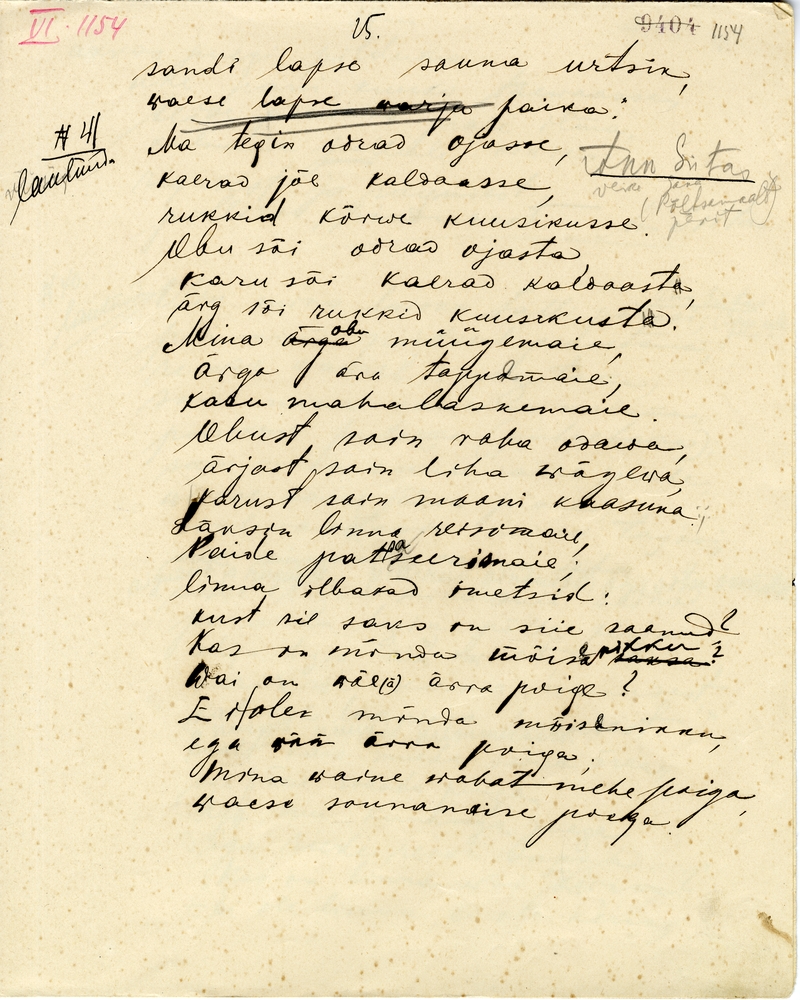 VI 1154
25.
9404 1154
sandi lapse sauna urtsik,
waese lapse warju paika."
N 41
lauluinda
Ma tegin odrad ojasse,
Ann Siitas
kaerad jõe kaldaasse,
rukkid kõrwe kuusikusse.
Obu sõi odrad ojasta
karu sõi kaerad kaldaasta,
ärg sõi rukkid kuusikusta.
Mina ärga obu müügemaie,
ärga ära tappemaie,
karu mahalaskemaie.
Obust sain raha odawa,
ärjast sain liha wägewa,
karust sain maani kaasuka;
Läksin linna reisimaie,
Paide patseerimaie;
linna albasad imetsid:
kust sie saks on siie saanud?
Kas on mõnda mõisanikku saksa?
Wai on wäe(ä) ärra poige?
Ei ole mõnda mõisnikku,
ega wää ärra poiga,
Mina waine wabatmehe poiga,
waese saunanaise poega.